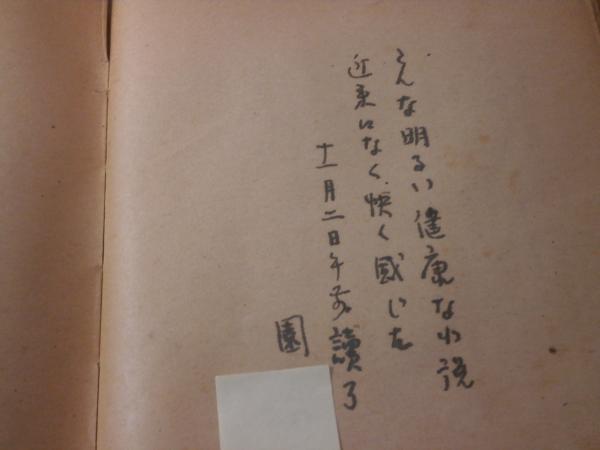 こんな明るい健康な小説
近来になく快く感じた
十一月二日午前讀了
園